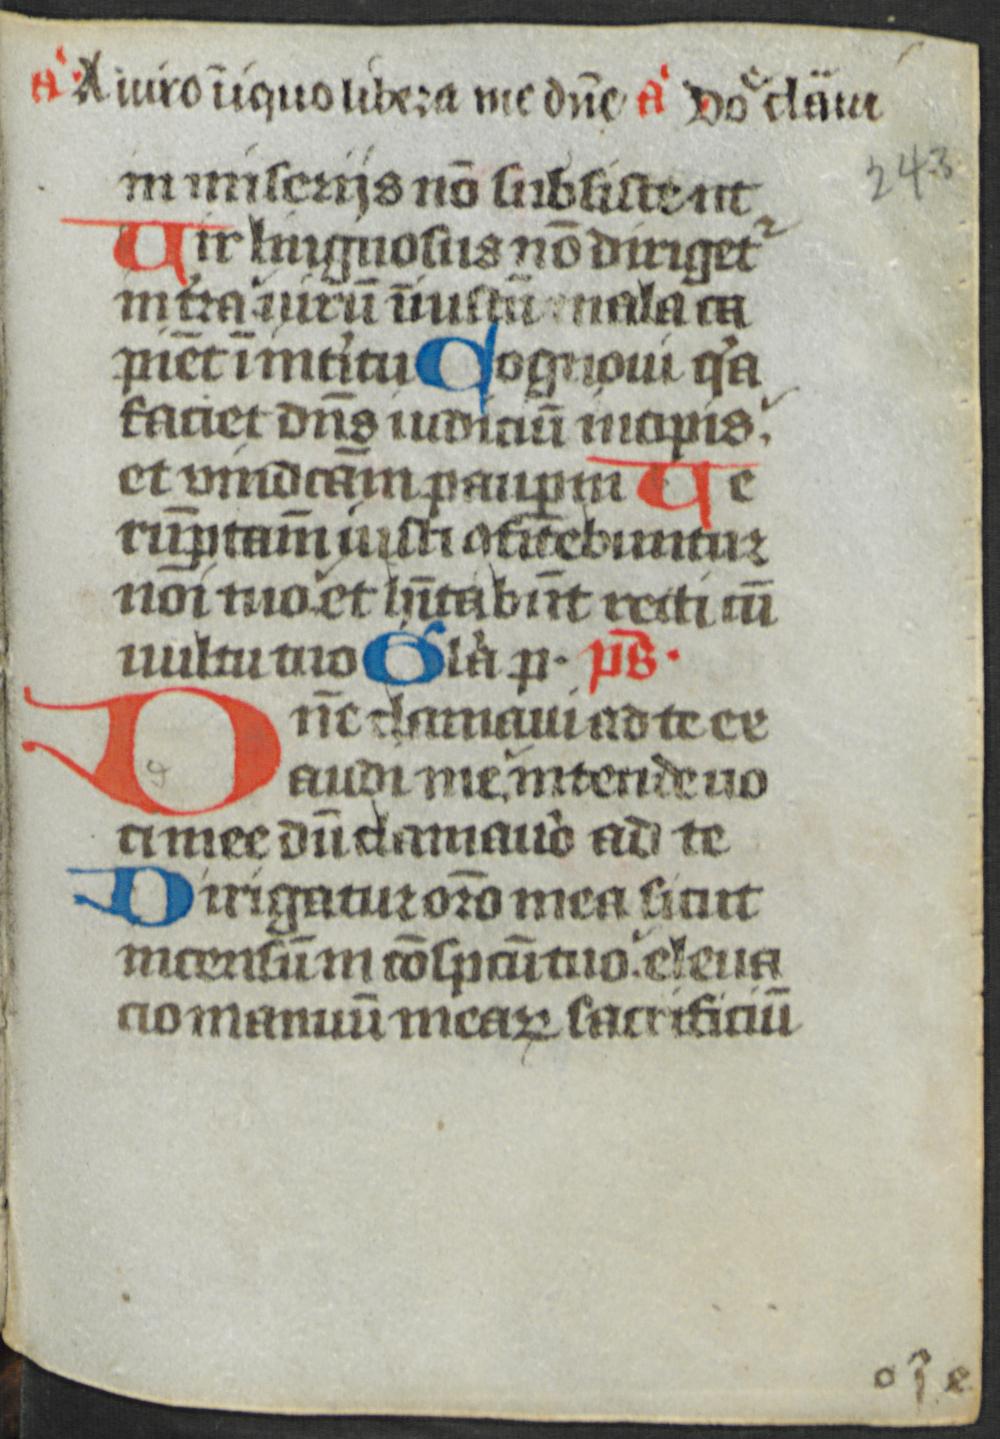 a᷎ A uiro ı̄iquo libera me dn̄e a᷎ Doe clāui
243
in miserijs nō subsistent
Uir linguosus nō diriget᷑
in tr̄a uirū ı̄iustū mala ca
piēt ī int̓itu Cognoui q̓a
faciet dn̄s iudiciū inopis
et vindcām paup̱m Ue
rūp̱tam̄ iusti ꝯfitebuntur
nōı tuo et hn̄tabn̄t recti cū
uultu tuo Gl̓a p. ps̄.
Dn̄e clamaui ad te ex
audi me intende uo
ci mee dū clamau̓o ad te
Dirigatur or̄o mea sicut
incensū in cōspcū tuo eleua
cio manuū meaꝝ sacrificiū